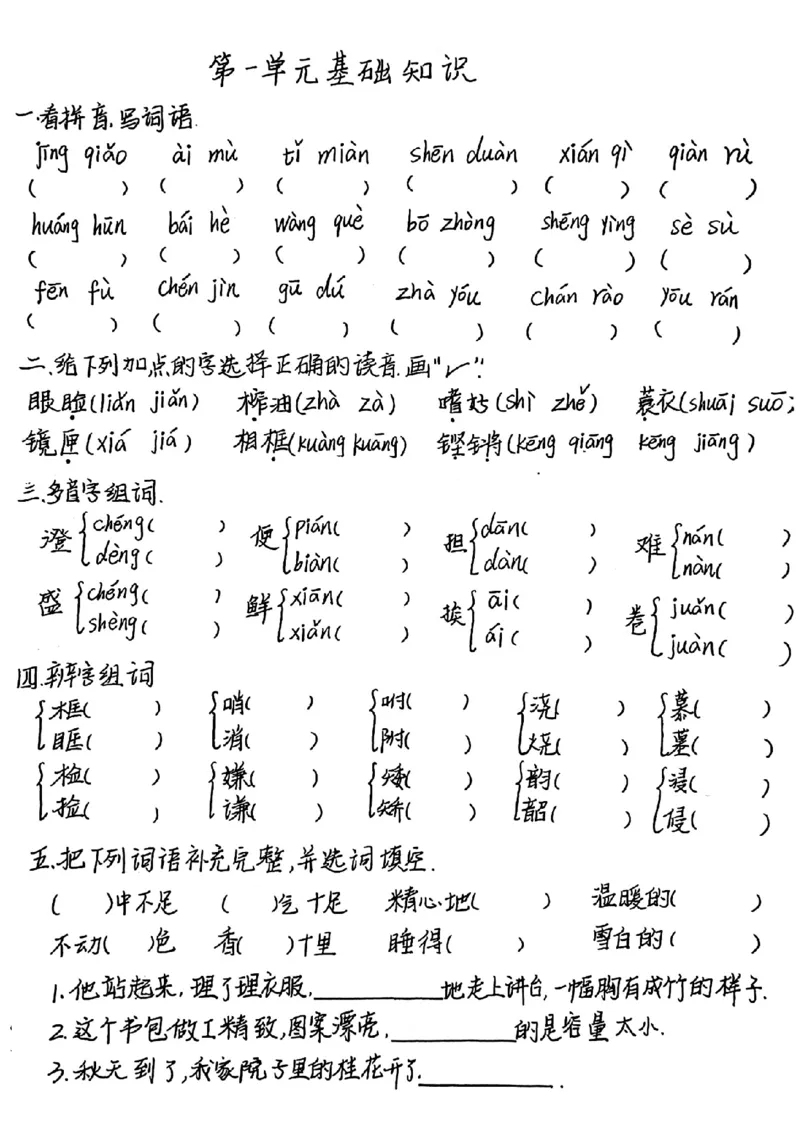 第一单元基础知识
一.看拼音,写词语.
jīng qiǎo ài mù tǐ miàn shēn duàn xián qì qiàn rù
( ) ( ) ( ) ( ) ( ) ( )
huáng hūn bái hè wàng què bō zhòng shēng yìng sè sù
( ) ( ) ( ) ( ) ( ) ( )
fēn fù chén jìn gū dú zhà yóu chán rào yōu rán
( ) ( ) ( ) ( ) ( ) ( )
二.给下列加点的字选择正确的读音.画"✓".
眼睑(liǎn jiǎn) 榨油(zhà zà) 嗜好(shì zhě) 蓑衣(shuāi suō)
镜匣(xiá jiá) 相框(kuàng kuāng) 铿锵(kēng qiāng kēng jiāng)
三.多音字组词.
澄{chéng( ) 便{pián( ) 担{dān( ) 难{nán( )
dèng( ) biàn( ) dàn( ) nàn( )
盛{chéng( ) 鲜{xiān( ) 挨{āi( ) 卷{juǎn( )
shèng( ) xiǎn( ) ái( ) juàn( )
四.辨字组词
{框( ) {哨( ) {吩( ) {浇( ) {慕( )
眶( ) 消( ) 附( ) 烧( ) 墓( )
{检( ) {嫌( ) {矮( ) {韵( ) {浸( )
捡( ) 谦( ) 矫( ) 韶( ) 侵( )
五.把下列词语补充完整,并选词填空.
( )中不足 ( )气十足 精心地( ) 温暖的( )
不动( )色 香( )十里 睡得( ) 雪白的( )
1.他站起来,理了理衣服,________地走上讲台,一幅胸有成竹的样子.
2.这个书包做工精致,图案漂亮,________的是容量太小.
3.秋天到了,我家院子里的桂花开了.________.